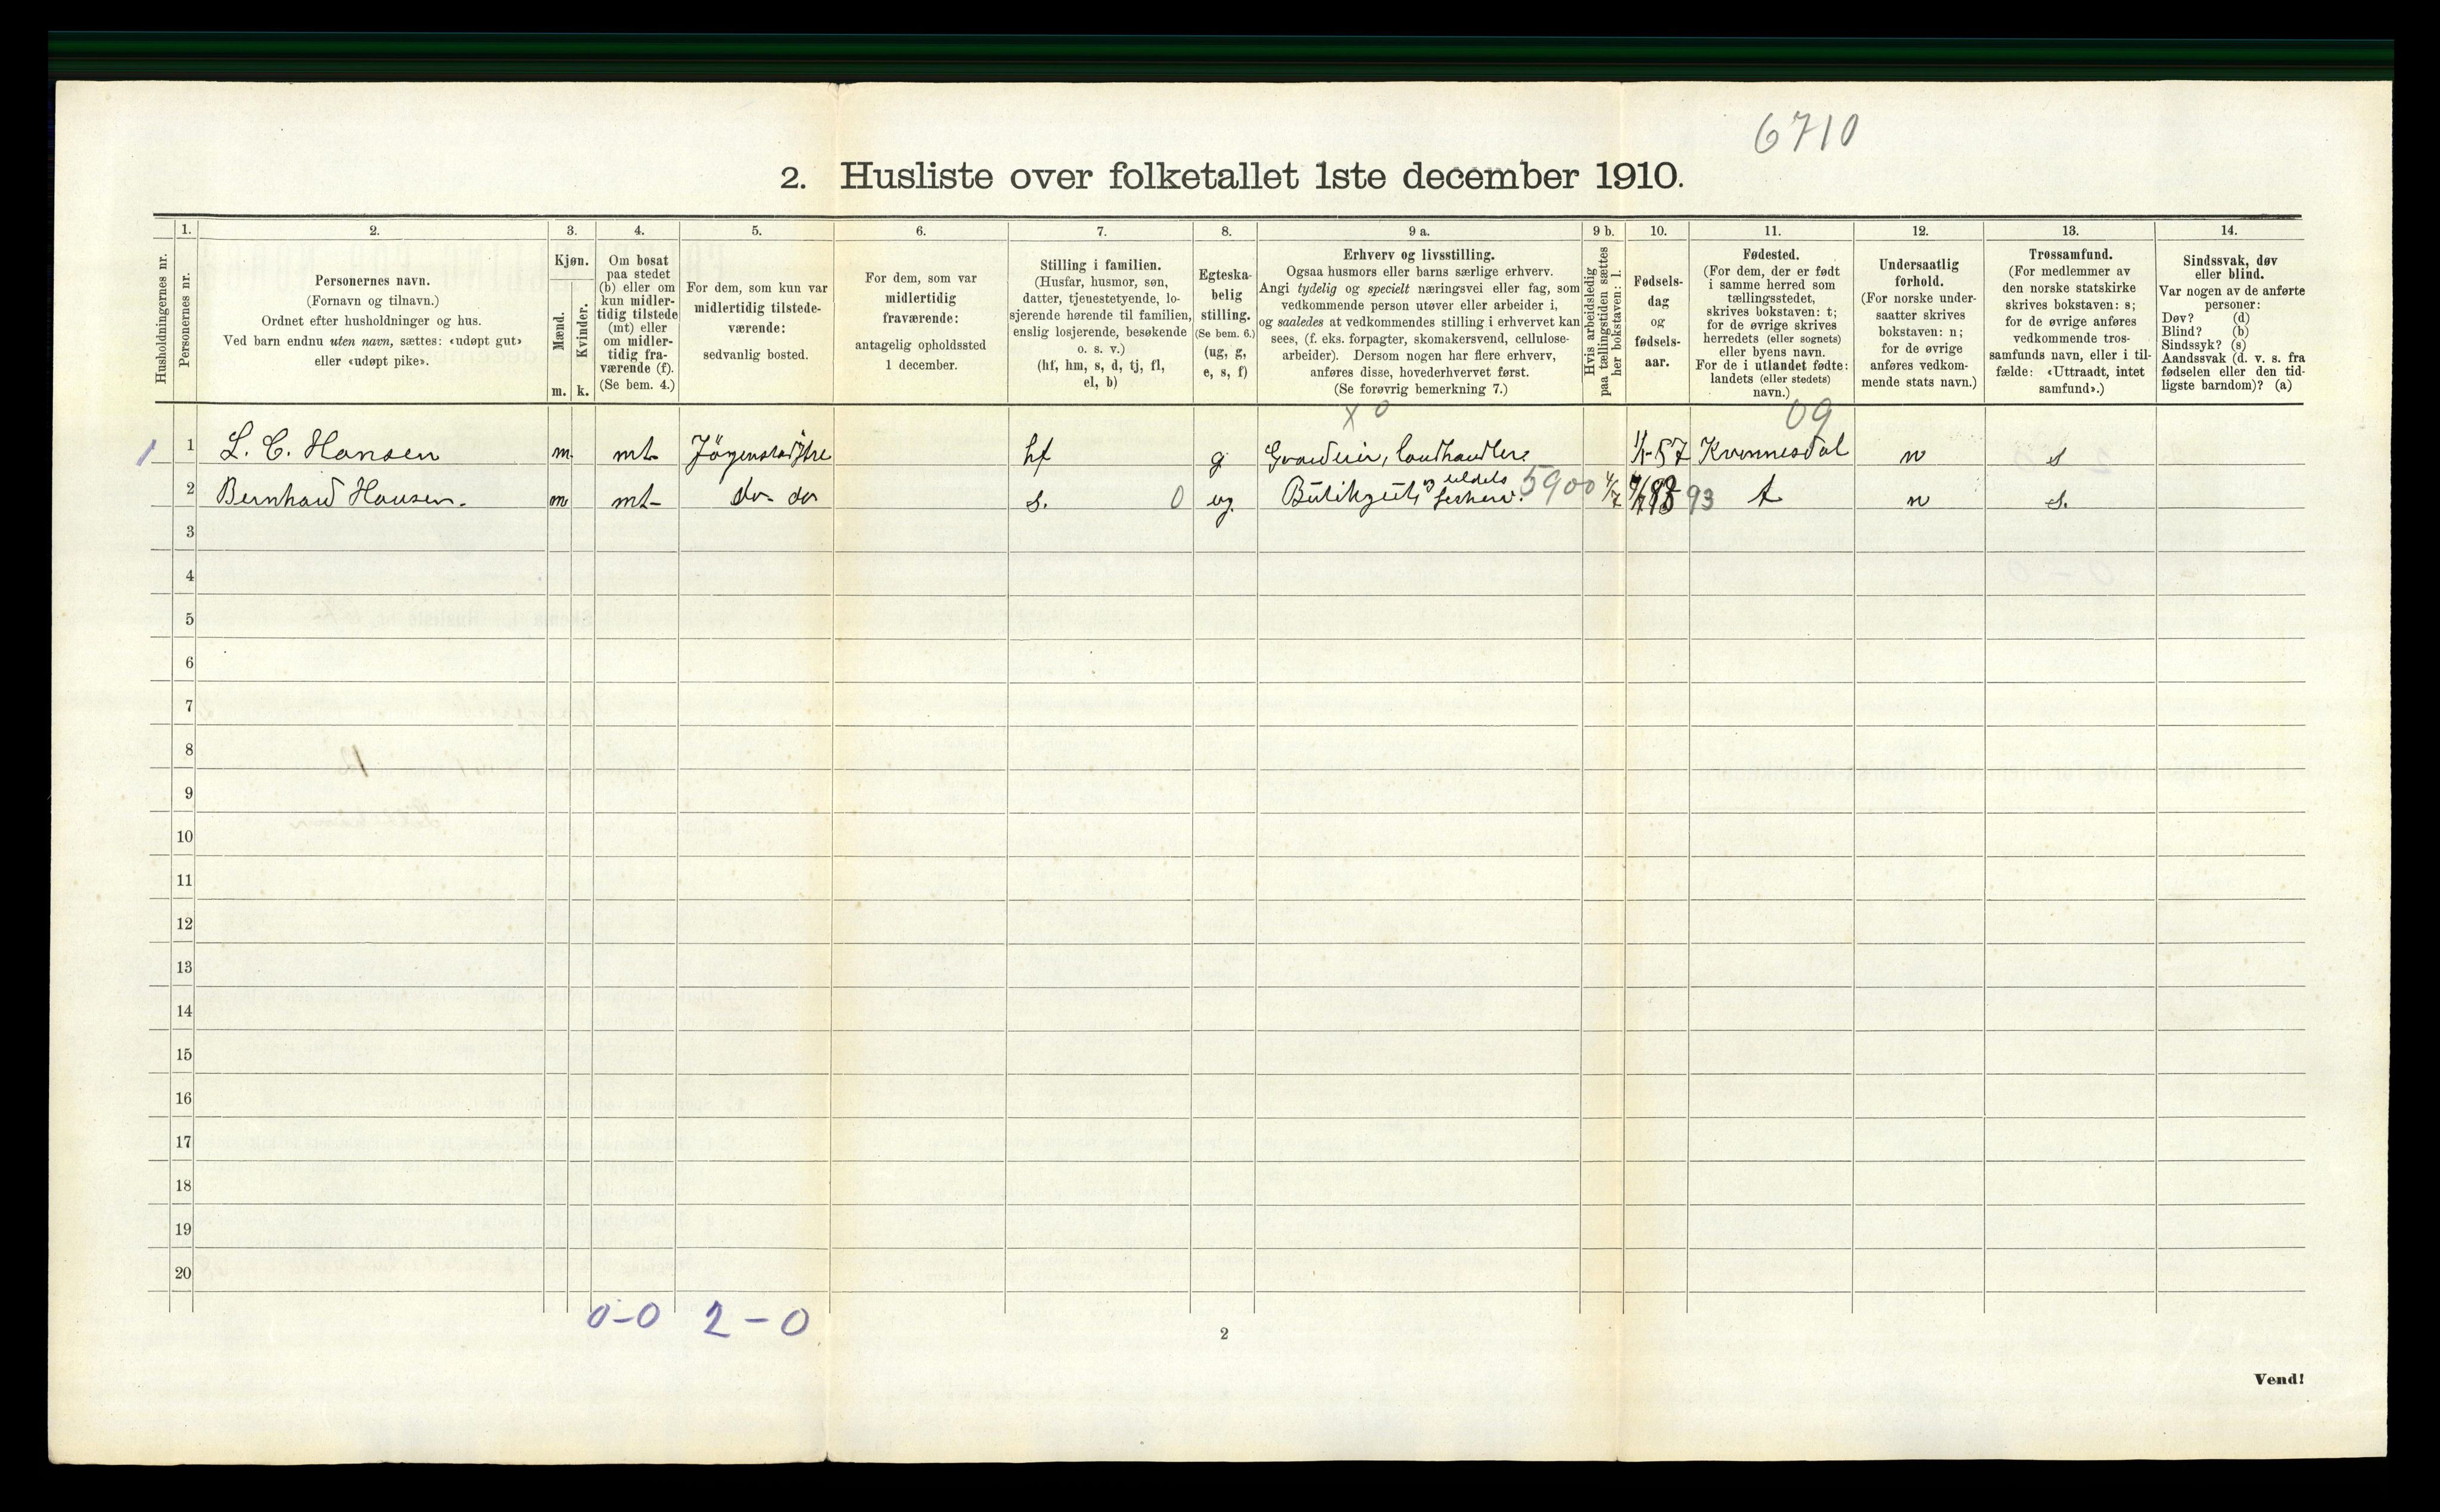 6710
2. Husliste over folketallet 1ste december 1910.
Husholdningernes nr.
1.
Personernes nr.
2.
Personernes navn.
(Fornavn og tilnavn.)
Ordnet efter husholdninger og hus.
Ved barn endnu uten navn, sættes: «udøpt gut»
eller «udøpt pike».
3.
Kjøn.
Mænd.
Kvinder.
m. k.
4.
Om bosat
paa stedet
(b) eller om
kun midler-
tidig tilstede
(mt) eller
om midler-
tidig fra-
værende (f).
(Se bem. 4.)
5.
For dem, som kun var
midlertidig tilstede-
værende:
sedvanlig bosted.
6.
For dem, som var
midlertidig
fraværende:
antagelig opholdssted
1 december.
7.
Stilling i familien.
(Husfar, husmor, søn,
datter, tjenestetyende, lo-
sjerende hørende til familien,
enslig losjerende, besøkende
o. s. v.)
(hf, hm, s, d, tj, fl,
el, b)
8.
Egteska-
belig
stilling.
(Se bem. 6.)
(ug, g,
e, s, f)
9 a.
Erhverv og livsstilling.
Ogsaa husmors eller barns særlige erhverv.
Angi tydelig og specielt næringsvei eller fag, som
vedkommende person utøver eller arbeider i,
og saaledes at vedkommendes stilling i erhvervet kan
sees, (f. eks. forpagter, skomakersvend, cellulose-
arbeider). Dersom nogen har flere erhverv,
anføres disse, hovederhvervet først.
(Se forøvrig bemerkning 7.)
9 b.
Hvis arbeidsledig
paa tællingstiden sættes
her bokstaven: l.
10.
Fødsels-
dag
og
fødsels-
aar.
11.
Fødested.
(For dem, der er født
i samme herred som
tællingsstedet,
skrives bokstaven: t;
for de øvrige skrives
herredets (eller sognets)
eller byens navn.
For de i utlandet fødte:
landets (eller stedets)
navn.)
12.
Undersaatlig
forhold.
(For norske under-
saatter skrives
bokstaven: n;
for de øvrige
anføres vedkom-
mende stats navn.)
13.
Trossamfund.
(For medlemmer av
den norske statskirke
skrives bokstaven: s;
for de øvrige anføres
vedkommende tros-
samfunds navn, eller i til-
fælde: «Uttraadt, intet
samfund».)
14.
Sindssvak, døv
eller blind.
Var nogen av de anførte
personer:
Døv? (d)
Blind? (b)
Sindssyk? (s)
Aandssvak (d. v. s. fra
fødselen eller den tid-
ligste barndom)? (a)
x 0 09
1 1 L. C. Hansen m mt g hf Gaardeier, landhandler -57 Kvinnesdal n s
2 Bernhard Hansen. m mt do do s. 0 ug. 5900 93 t n s.
3
4
5
6
7
8
9
10
11
12
13
14
15
16
17
18
19
20
0-0 2-0
2
Vend!